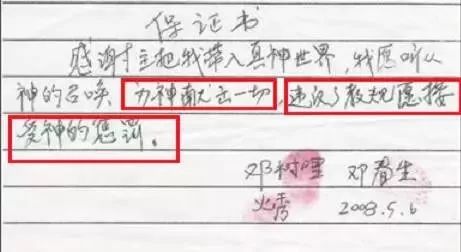 保证书
感谢主把我带入真神世界，我愿听从
神的召唤，为神献出一切，违反了教规愿接
受神的惩罚。
邓树
2008.5.6